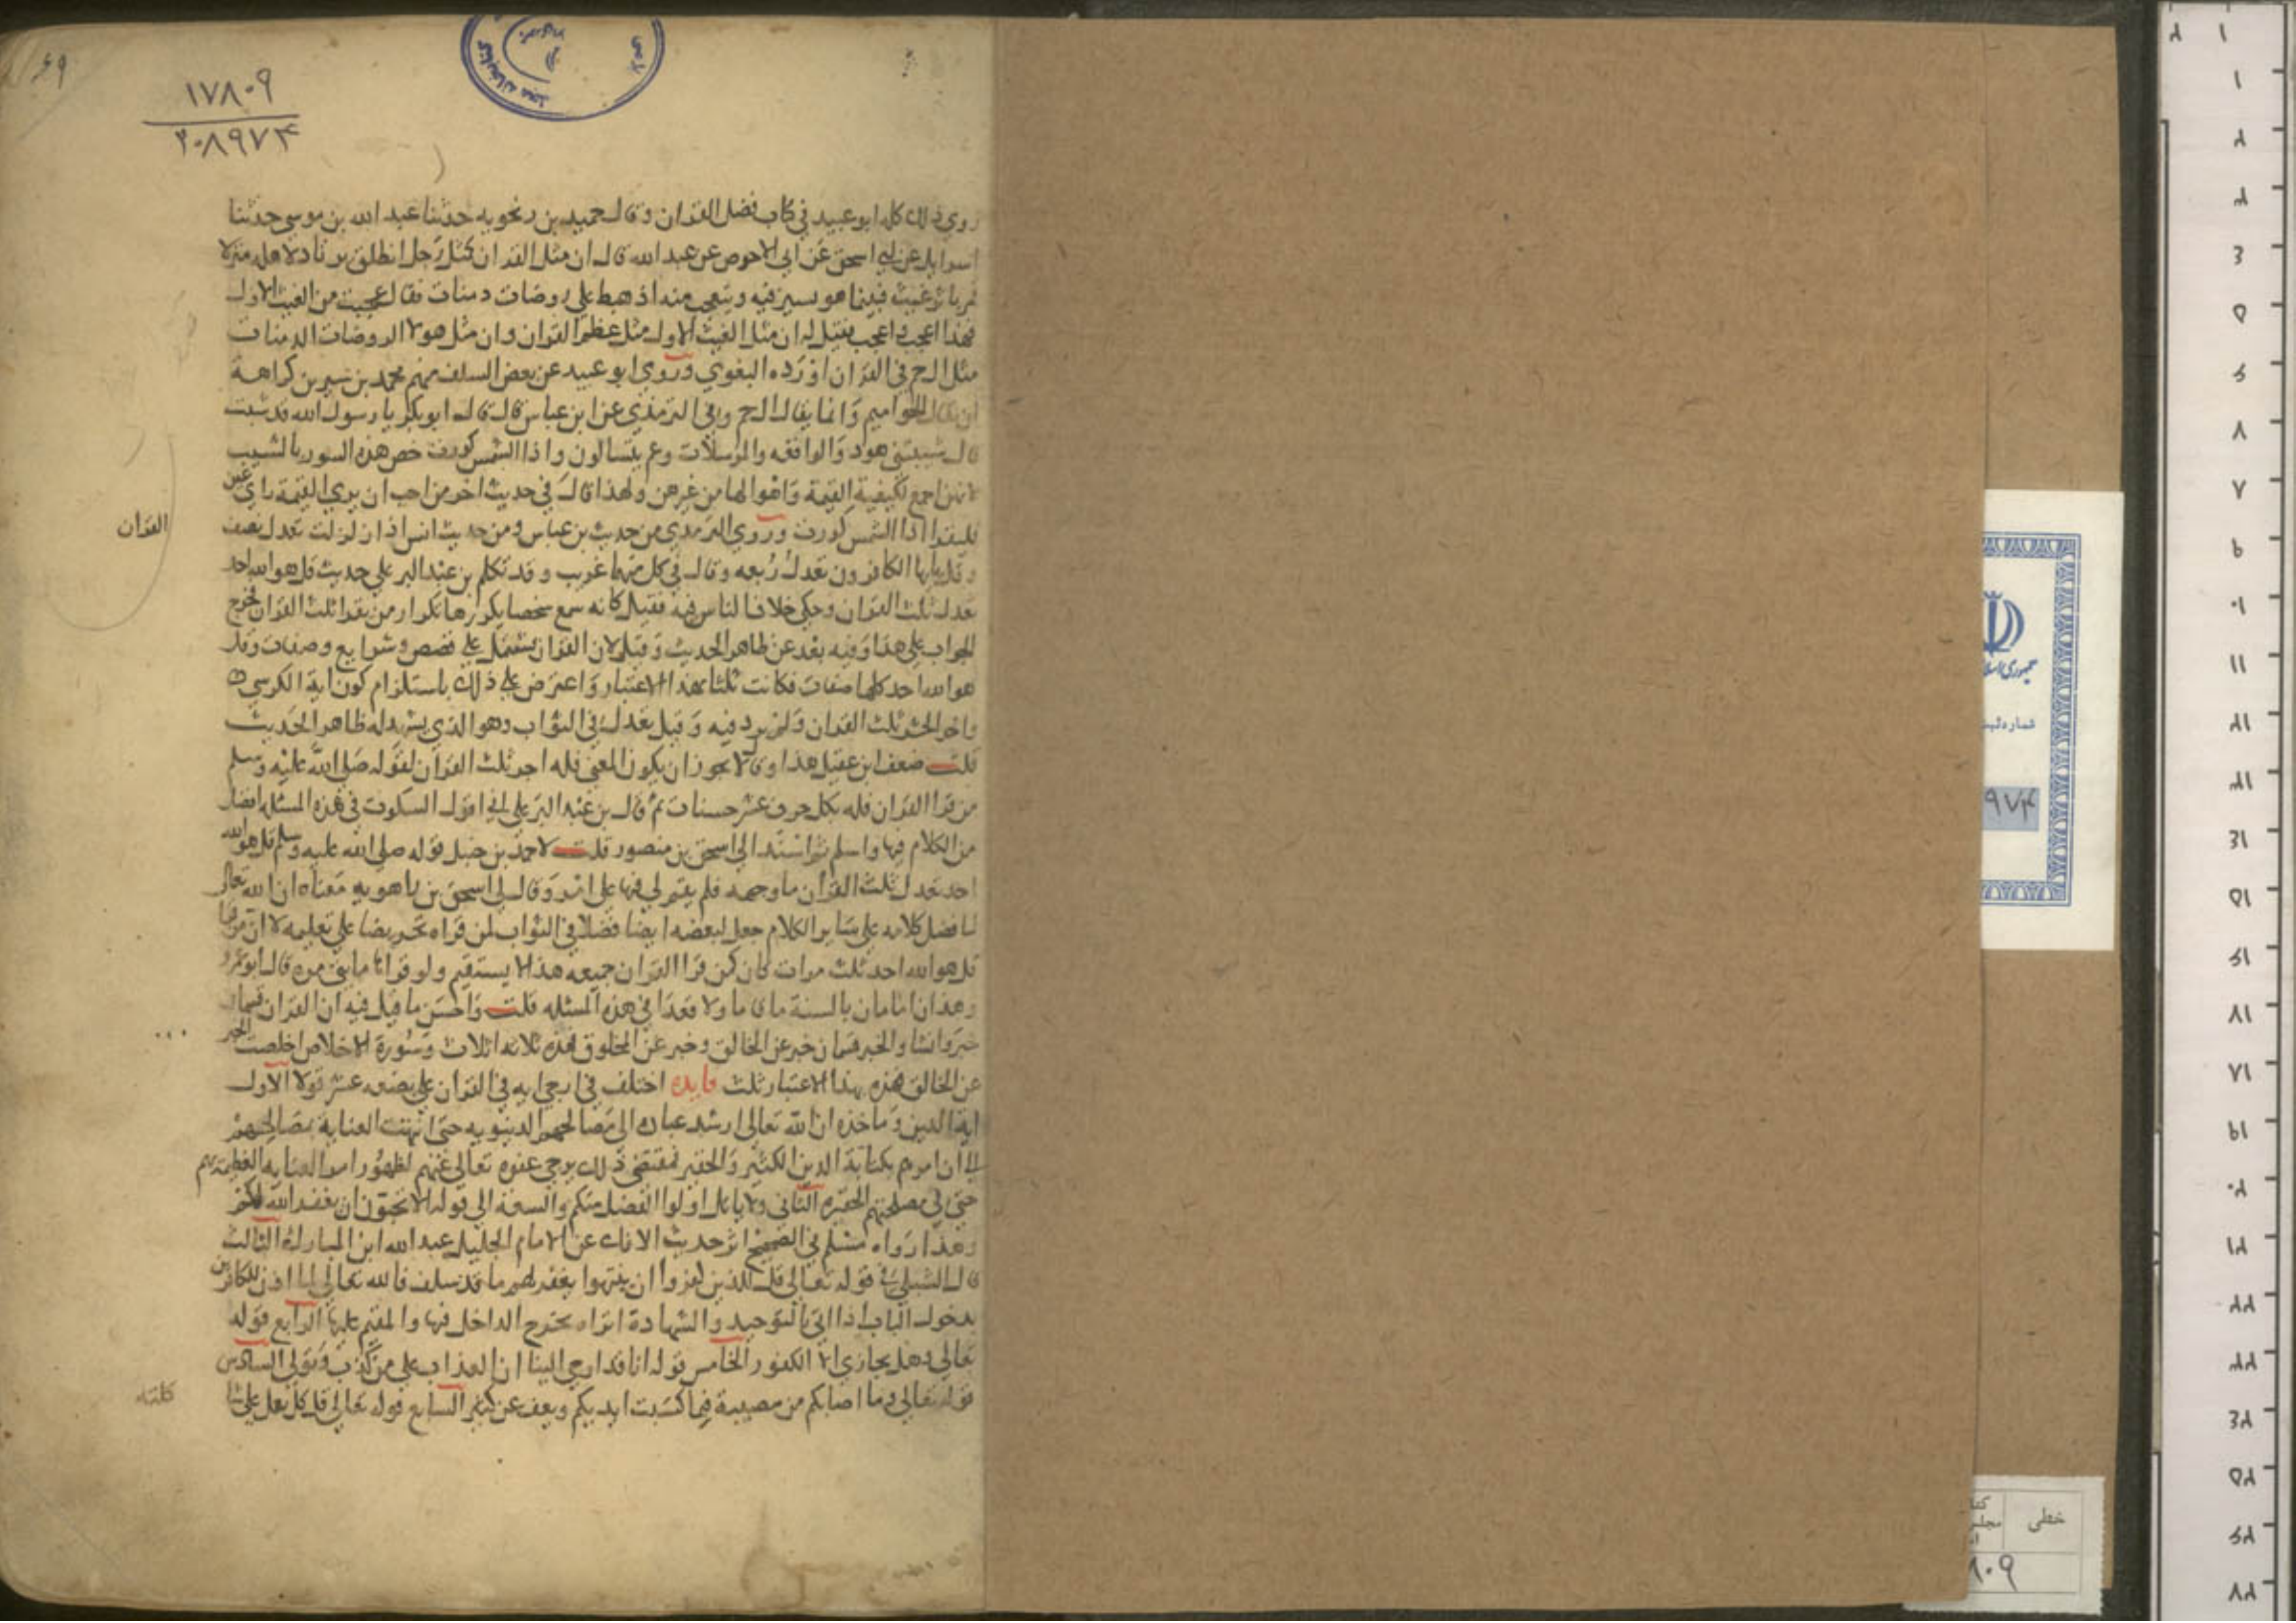 ٦٩
١٧٨٠٩
٢٠٨٩٧٤
روي ذلك كله ابو عبيد في كتاب فضل القران وقال حميد بن زنجويه حدثنا عبد الله بن موسى حدثنا
اسرايل عن ابي اسحق عن ابي الاحوص عن عبد الله قال ان مثل القران كمثل رجل انطلق يرتاد لاهله منزلا
فمر باثر غيث فبينا هو يسير فيه ويتعجب منه اذ هبط على روضات دمثات فقال عجبت من الغيث الاول
فهذا اعجب واعجب فقيل له ان مثل الغيث الاول مثل عظم القران وان مثل هولا الروضات الدمثات
مثل ال حم في القران اورده البغوي وروي ابو عبيد عن بعض السلف منهم محمد بن سيرين كراهة
ان يقال الحواميم وانما يقال ال حم وفي الترمذي عن ابن عباس قال قال ابو بكر يا رسول الله قد شبت
قال شيبتني هود والواقعه والمرسلات وعم يتسالون واذا الشمس كورت خص هذه السور بالشيب
لانهن اجمع لكيفية القيمة واهوالها من غيرهن ولهذا قال في حديث اخر من احب ان يري القيمة راي عين
فليقرا اذا الشمس كورت وروي الترمذي من حديث بن عباس ومن حديث انس اذا زلزلت تعدل نصف
القران
وقل يايها الكافرون تعدل ربعه وقال في كل منهما غريب وقد تكلم بن عبد البر على حديث قل هو الله احد
تعدل ثلث القران وحكى خلاف الناس فيه فقيل كانه سمع شخصا يكررها تكرار من يقرا ثلث القران فخرج
الجواب على هذا وفيه بعد عن ظاهر الحديث وقيل لان القران يشتمل على قصص وشرايع وصفات وقل
هو الله احد كلها صفات فكانت ثلثا بهذا الاعتبار واعترض على ذلك باستلزام كون اية الكرسي
واخر الحشر ثلث القران ولم يرد فيه وقيل تعدل في الثواب وهو الذي يشهد له ظاهر الحديث
قلت ضعف ابن عقيل هذا وقال لا يجوز ان يكون المعنى فله اجر ثلث القران لقوله صلى الله عليه وسلم
من قرا القران فله بكل حرف عشر حسنات ثم قال بن عبد البر على اني اقول السكوت في هذه المسئله افضل
من الكلام فيها واسلم ثم اسند الي اسحق بن منصور قلت لاحمد بن حنبل قوله صلى الله عليه وسلم قل هو الله
احد تعدل ثلث القران ما وجهه فلم يقم لي فيها على امر وقال لي اسحق بن راهويه معناه ان الله تعالى
لما فضل كلامه على ساير الكلام جعل لبعضه ايضا فضلا في الثواب لمن قراه تحريضا على تعليمه لا ان من قرا
قل هو الله احد ثلث مرات كان كمن قرا القران جميعه هذا لا يستقيم ولو قراها مايتي مره قال ابو عمرو
وهذان امامان بالسنة ما قاما ولا قعدا في هذه المسئله قلت واحسن ما قيل فيه ان القران قسمان
خبر وانشا والخبر قسمان خبر عن الخالق وخبر عن المخلوق فهذه ثلاثه اثلاث وسورة الاخلاص اخلصت الخبر
عن الخالق فهذه بهذا الاعتبار ثلث فايده اختلف في ارجى ايه في القران على بضعه عشر قولا الاول
اية الدين وماخذه ان الله تعالى ارشد عباده الى مصالحهم الدنيويه حتى انتهت العناية بمصالحهم
الى ان امرهم بكتابة الدين الكثير والحقير فمقتضى ذلك يرجى عفوه تعالى عنهم لظهور امر العنايه العظيمه بهم
حتى في مصلحتهم الحقيره الثاني ولا ياتل اولوا الفضل منكم والسعة الى قوله الا تحبون ان يغفر الله لكم
وهذا رواه مسلم في الصحيح اثر حديث الافك عن الامام الجليل عبد الله ابن المبارك الثالث
قال الشبلي في قوله تعالى قل للذين كفروا ان ينتهوا يغفر لهم ما قد سلف فالله تعالى لما اذن للكافرين
بدخول الباب اذا اتى بالتوحيد والشهادة اتراه يخرج الداخل فيها والمقيم عليها الرابع قوله
تعالى وهل يجازى الا الكفور الخامس قوله انا قد اوحي الينا ان العذاب على من كذب وتولى السادس
قوله تعالى وما اصابكم من مصيبة فبما كسبت ايديكم ويعف عن كثير السابع قوله تعالى قل كل يعمل على شا
كلته
جمهوری اسلا
شماره ثبت
٩٧٤
خطی
کتا
مجلس
٨٠٩